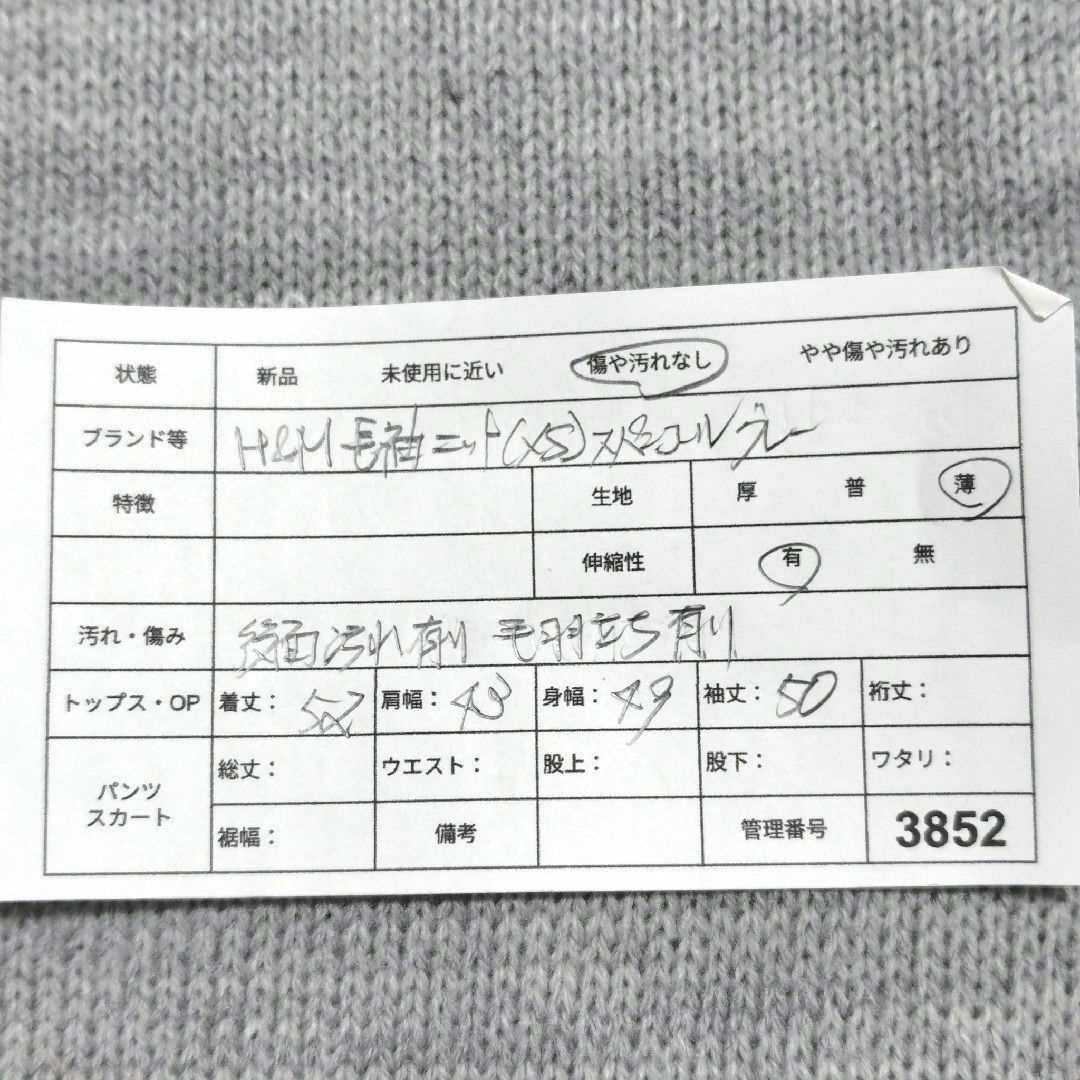 状態 新品 未使用に近い 傷や汚れなし やや傷や汚れあり
ブランド等 H&M 長袖ニット(XS) グレー
特徴 生地 厚 普 薄
伸縮性 有 無
汚れ・傷み 後面汚れ有り 毛羽立ち有り
トップス・OP 着丈： 52 肩幅： 43 身幅： 49 袖丈： 50 裄丈：
パンツ スカート 総丈： ウエスト： 股上： 股下： ワタリ：
裾幅： 備考 管理番号 3852